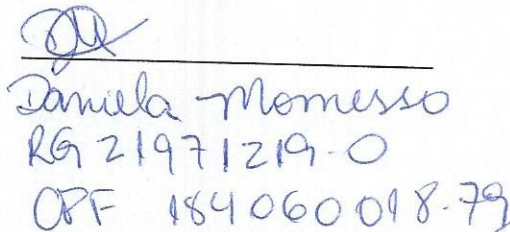 Daniela Momesso
RG 21971219-0
CPF 184060018-79